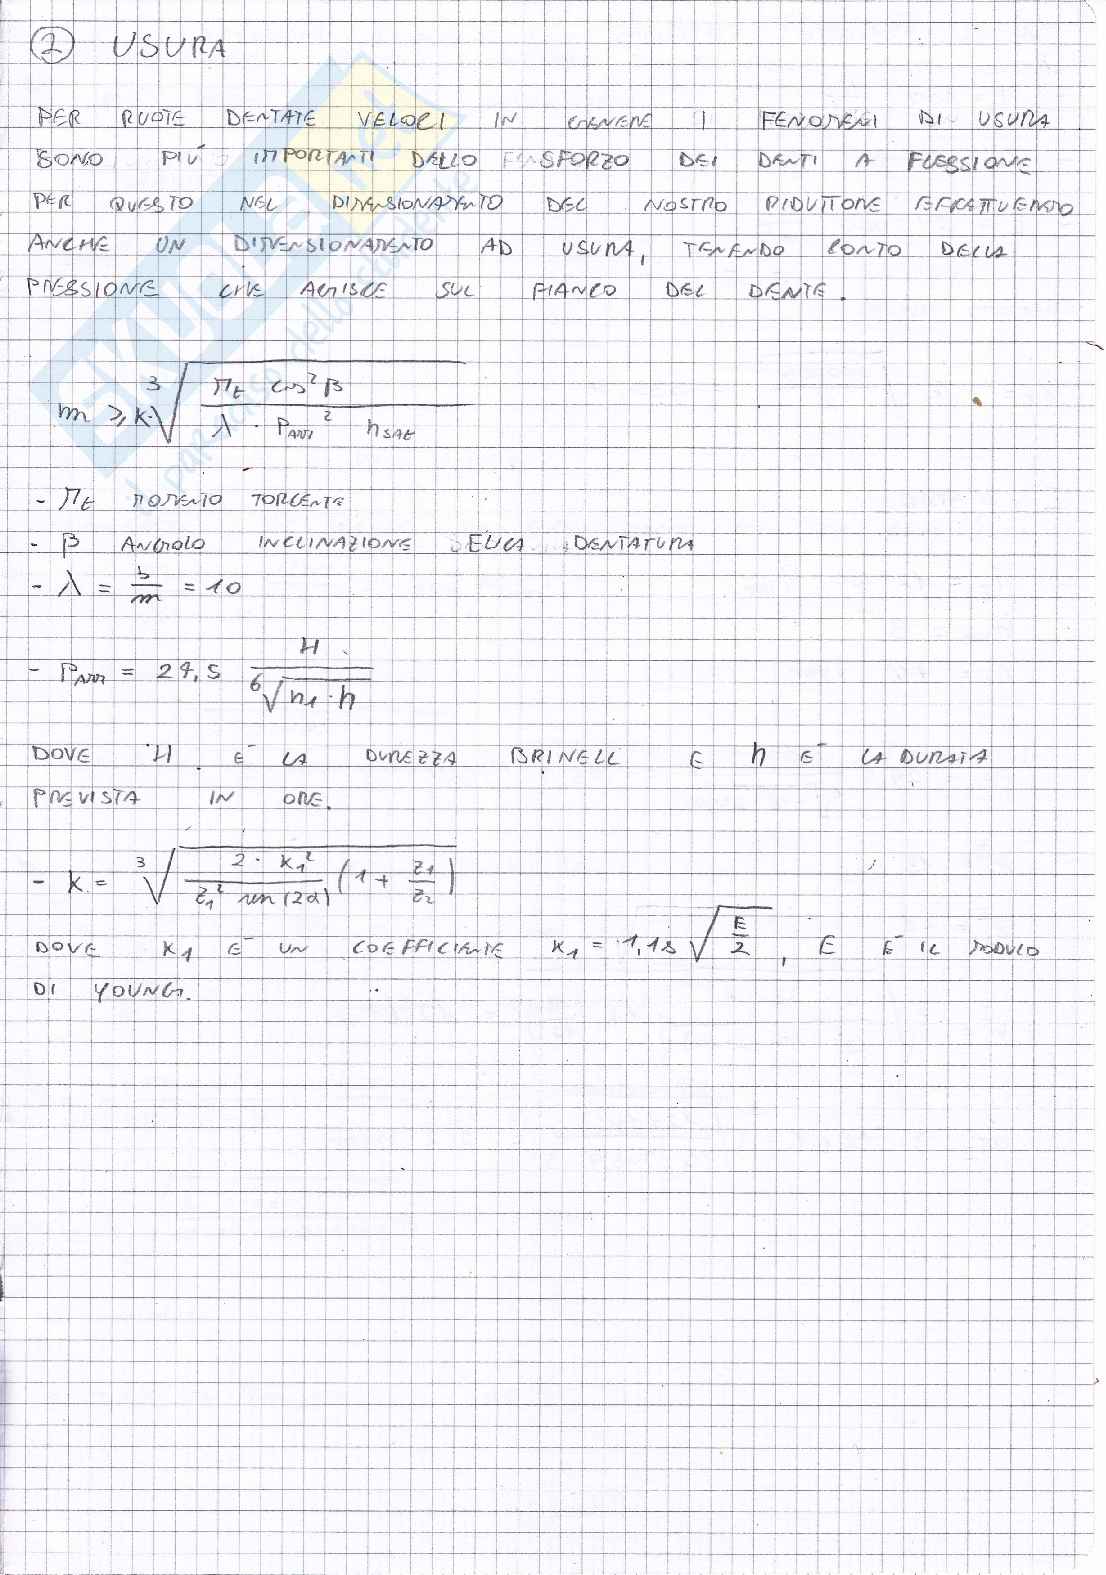 ② USURA
PER RUOTE DENTATE VELOCI IN GENERE I FENOMENI DI USURA
SONO PIÚ IMPORTANTI DELLO SFORZO DEI DENTI A FLESSIONE
PER QUESTO NEL DIMENSIONAMENTO DEL NOSTRO RIDUTTORE EFFETTUEREMO
ANCHE UN DIMENSIONAMENTO AD USURA, TENENDO CONTO DELLA
PRESSIONE CHE AGISCE SUL FIANCO DEL DENTE.
m ≥ K · ∛( Mt cos²β / (λ · Pam² nsat) )
- Mt MOMENTO TORCENTE
- β ANGOLO INCLINAZIONE ELICA DENTATURA
- λ = b/m = 10
- Pam = 24,5 H / ⁶√(n1 · h)
DOVE H È LA DUREZZA BRINELL E h È LA DURATA
PREVISTA IN ORE.
- K = ∛( 2 · K1² / (z1² sen(2α)) (1 + z1/z2) )
DOVE K1 È UN COEFFICIENTE K1 = 1,18 √(E/2) , E È IL MODULO
DI YOUNG.